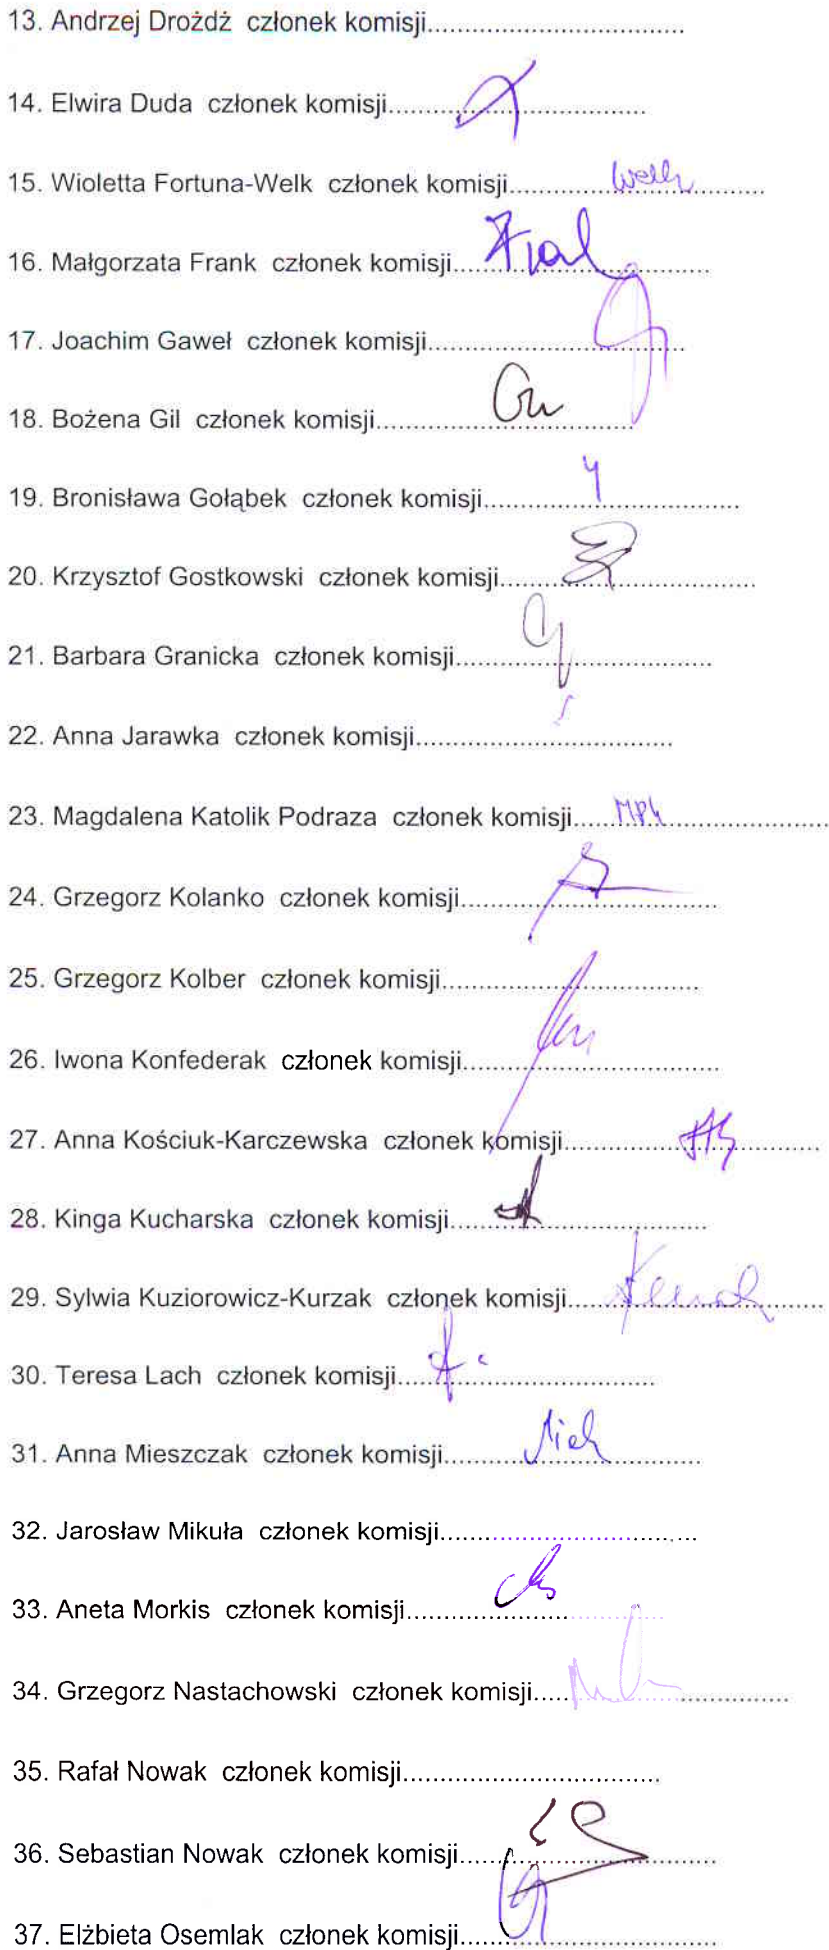 13. Andrzej Drożdż członek komisji.................................
14. Elwira Duda członek komisji.................................
15. Wioletta Fortuna-Welk członek komisji.................................
16. Małgorzata Frank członek komisji.................................
17. Joachim Gaweł członek komisji.................................
18. Bożena Gil członek komisji.................................
19. Bronisława Gołąbek członek komisji.................................
20. Krzysztof Gostkowski członek komisji.................................
21. Barbara Granicka członek komisji.................................
22. Anna Jarawka członek komisji.................................
23. Magdalena Katolik Podraza członek komisji.................................
24. Grzegorz Kolanko członek komisji.................................
25. Grzegorz Kolber członek komisji.................................
26. Iwona Konfederak członek komisji.................................
27. Anna Kościuk-Karczewska członek komisji.................................
28. Kinga Kucharska członek komisji.................................
29. Sylwia Kuziorowicz-Kurzak członek komisji.................................
30. Teresa Lach członek komisji.................................
31. Anna Mieszczak członek komisji.................................
32. Jarosław Mikuła członek komisji.................................
33. Aneta Morkis członek komisji.................................
34. Grzegorz Nastachowski członek komisji.................................
35. Rafał Nowak członek komisji.................................
36. Sebastian Nowak członek komisji.................................
37. Elżbieta Osemlak członek komisji.................................